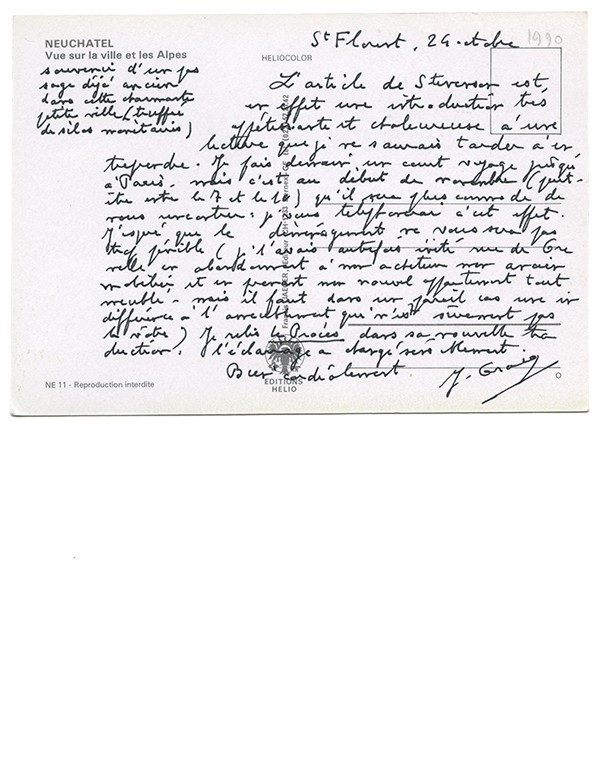 NEUCHATEL
Vue sur la ville et les Alpes
HELIOCOLOR
St Florent, 24 octobre
1990
souvenir d'un pas
sage déjà ancien
dans cette charmante
petite ville (truffée
de silos monétaires)
L'article de Stevenson est
en effet une introduction très
appétissante et chaleureuse à une
lecture que je ne saurais tarder à en
treprendre. Je fais demain un court voyage jusqu'
à Paris, mais c'est au début de novembre (peut-
être entre le 7 et le 10) qu'il sera plus commode de
nous rencontrer : je vous téléphonerai à cet effet.
J'espère que le déménagement ne vous sera pas
trop pénible (je l'avais autrefois évité rue de Gre
nelle en abandonnant à mon acheteur mon ancien
mobilier et en prenant mon nouvel appartement tout
meublé - mais il faut dans un pareil cas une in
différence à l'ameublement qui n'est sûrement pas
la vôtre) Je relis le Procès dans sa nouvelle tra
duction : l'éclairage a changé sérieusement.
Bien cordialement
J. Gracq
EDITIONS
HELIO
NE 11 - Reproduction interdite